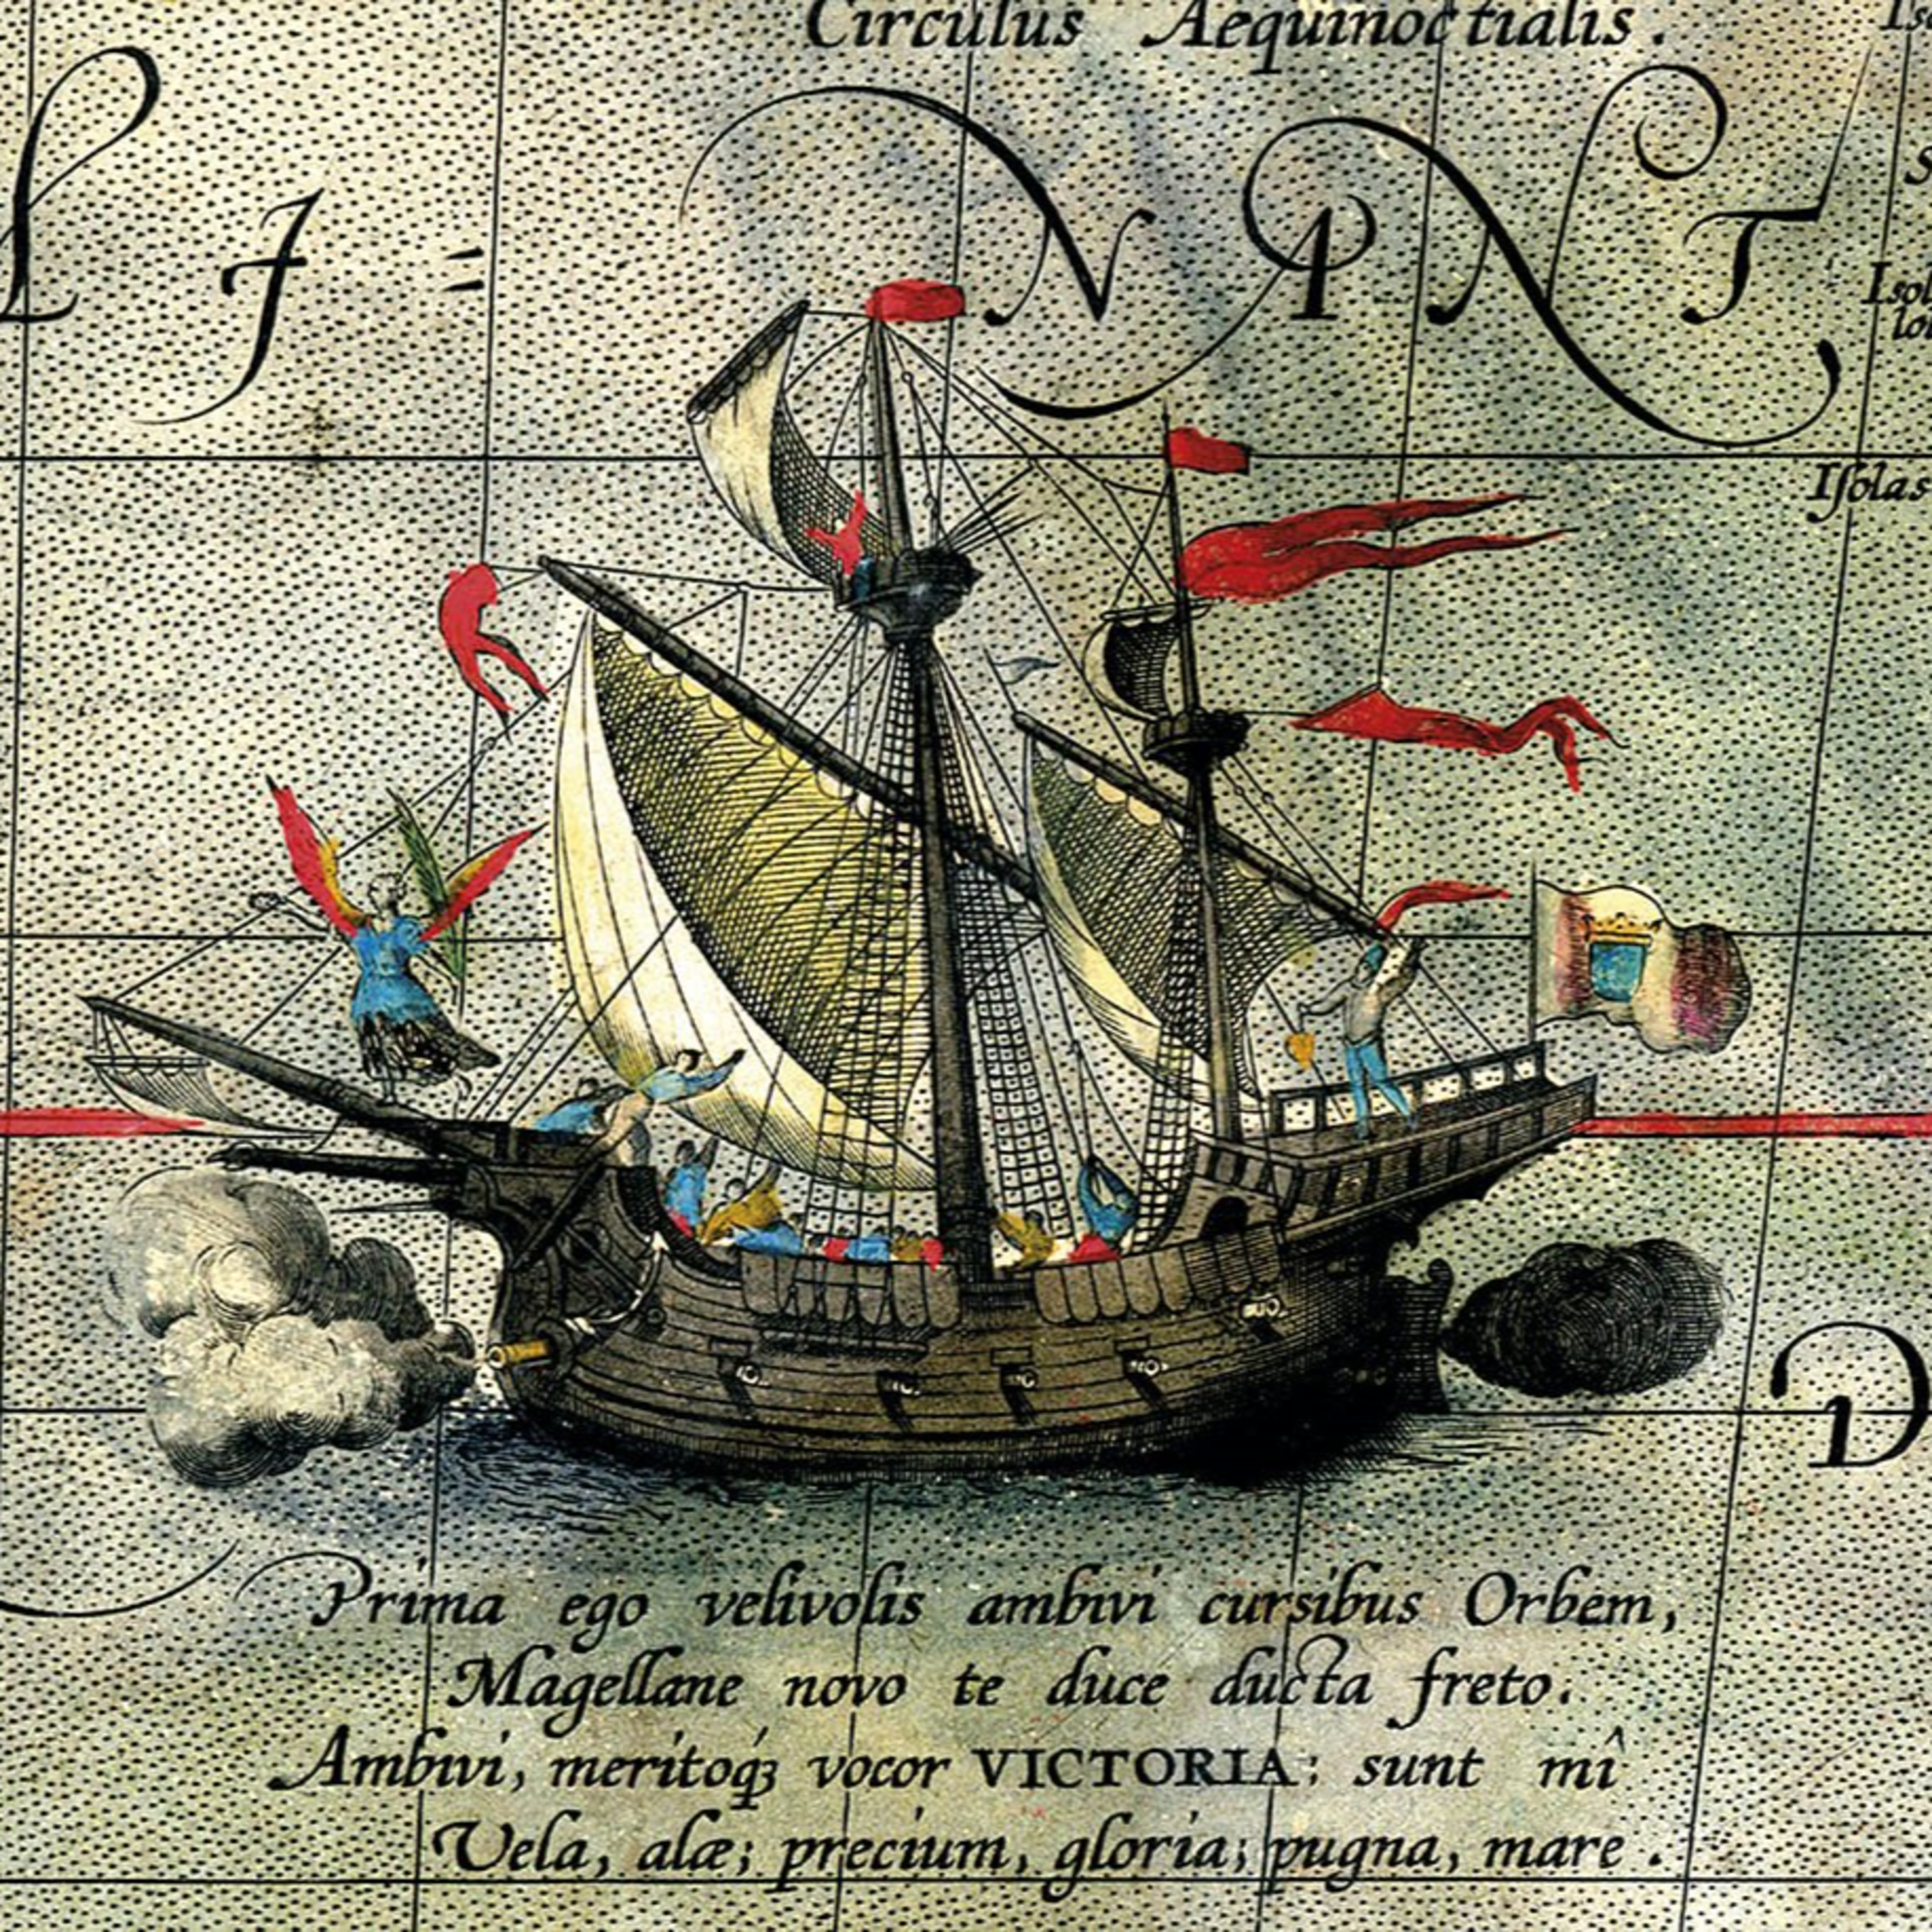 Circulus Aequinoctialis.
Isolas
Prima ego velivolis ambivi cursibus Orbem,
Magellane novo te duce ducta freto.
Ambivi, meritoqꝫ vocor VICTORIA: sunt mî
Vela, alæ; precium, gloria; pugna, mare.